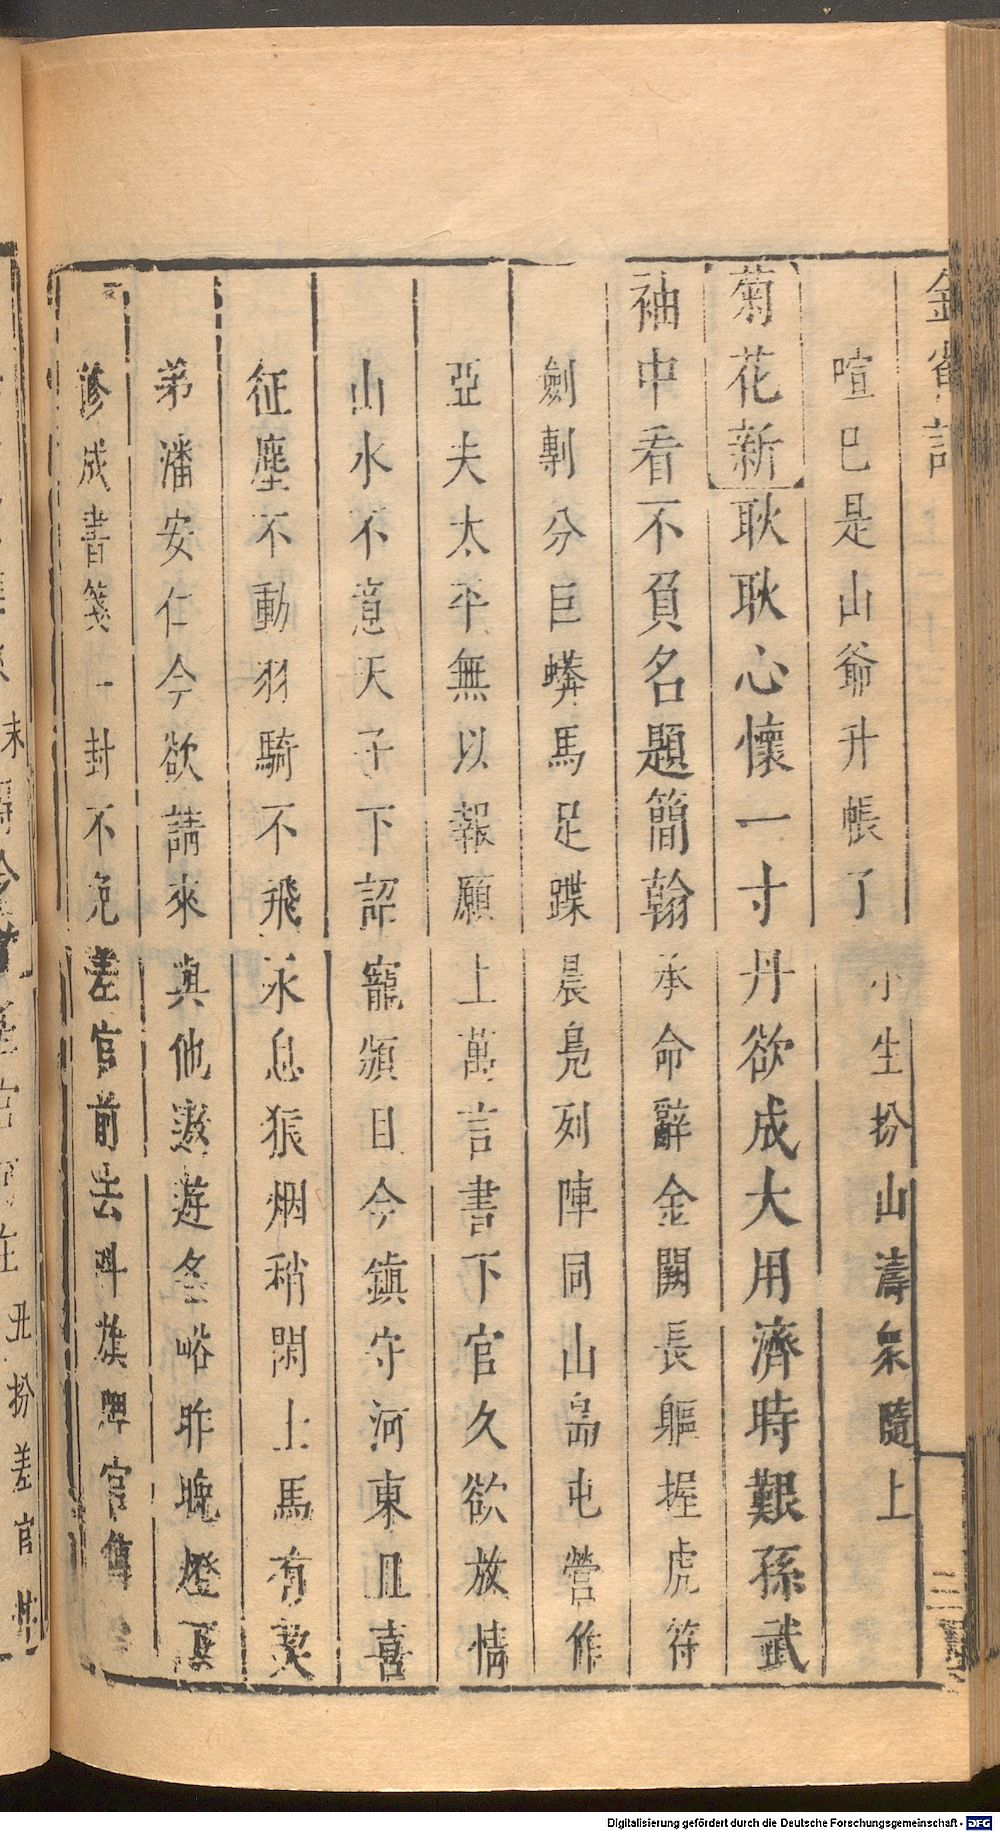 金雀記
喧已是山爺升帳了 小生扮山濤衆隨上
菊花新耿耿心懷一寸丹欲成大用濟時艱孫武
袖中看不負名題簡翰 承命辭金闕長軀握虎符
劍剸分巨蟒馬足蹀晨鳧列陣同山島屯營作
亞夫太平無以報願上萬言書下官久欲放情
山水不意天子下詔寵頒日今鎮守河東且喜
征塵不動羽騎不飛永息狼烟稍閑上馬有契
弟潘安仁今欲請來與他遨遊冬峪昨晚燈下
修成書箋一封不免差官前去科旗牌官傳
三
丑扮差官
Digitalisierung gefördert durch die Deutsche Forschungsgemeinschaft - DFG